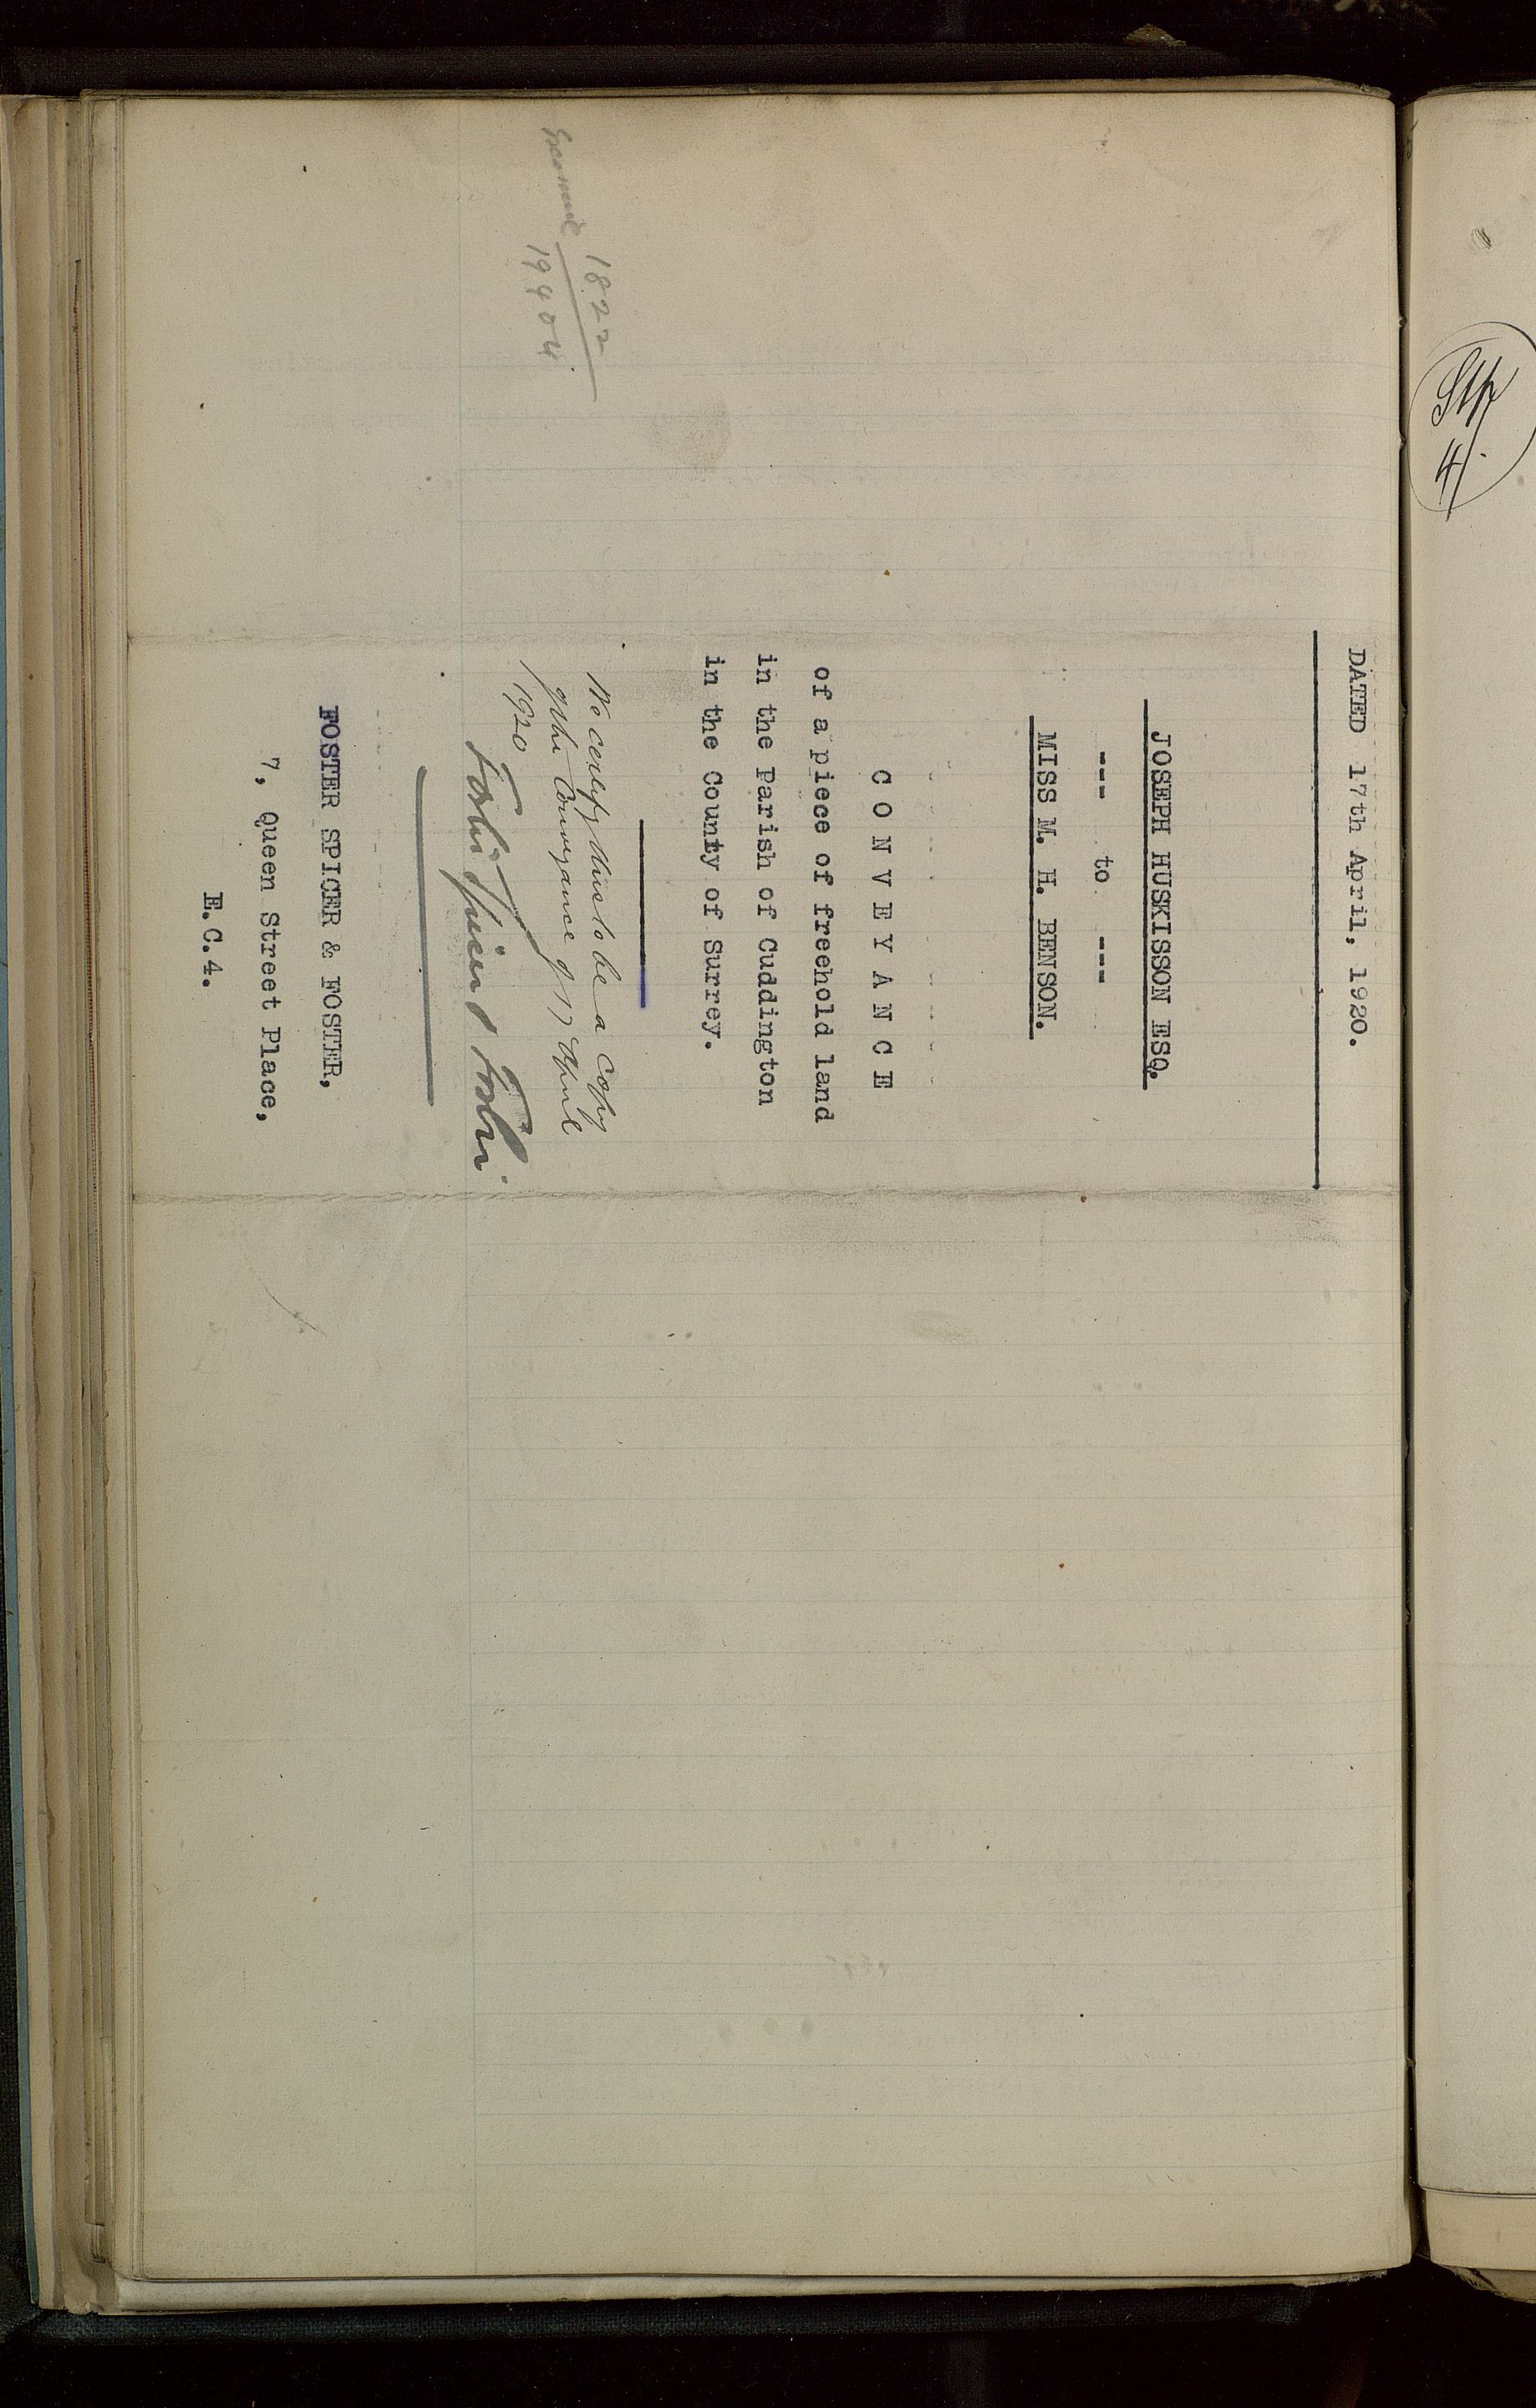 DATED 17th April, 1920.
JOSEPH HUSKISSON ESQ.
--- to ---
MISS M. H. BENSON.
C O N V E Y A N C E
of a piece of freehold land
in the Parish of Cuddington
in the County of Surrey.
We certify this to be a copy
of the Conveyance of 17 April
1920
Foster Spicer & Foster
FOSTER SPICER & FOSTER,
7, Queen Street Place,
E.C.4.
1822
19404
4/.